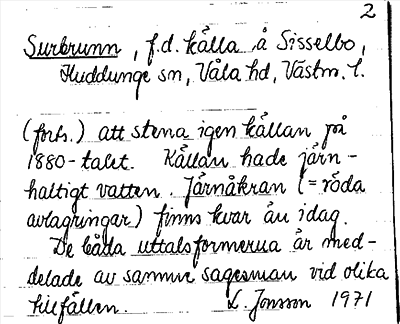 2
Surbrunn, f.d. källa å Sisselbo,
Huddunge sn, Våla hd, Västm. l.
(forts.) att stena igen källan på
1880-talet. Källan hade järn-
haltigt vatten. Järnåkran (= röda
avlagringar) finns kvar än idag.
De båda uttalsformerna är med-
delade av samme sagesman vid olika
tillfällen. L. Jonsson 1971